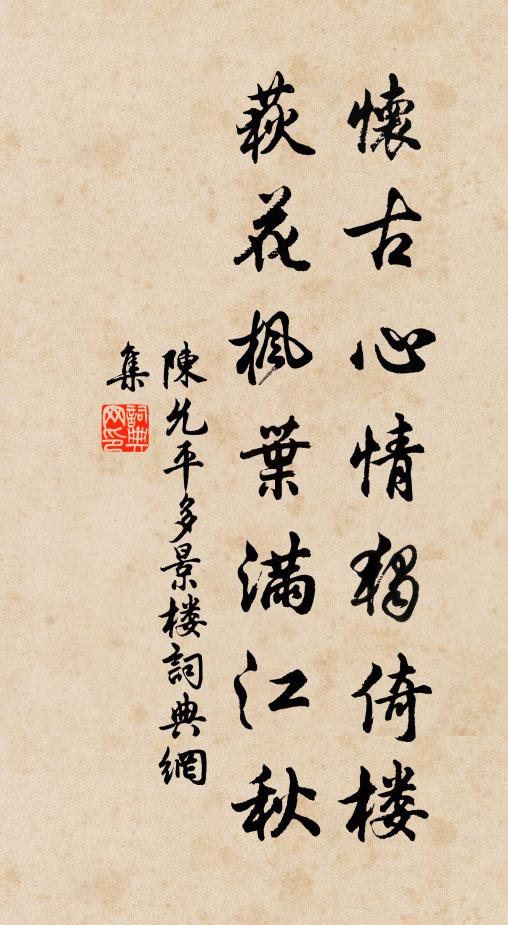 懷古心情獨倚楼
萩花楓葉滿江秋
陳允平多景楼詞典網
集
詞典网印